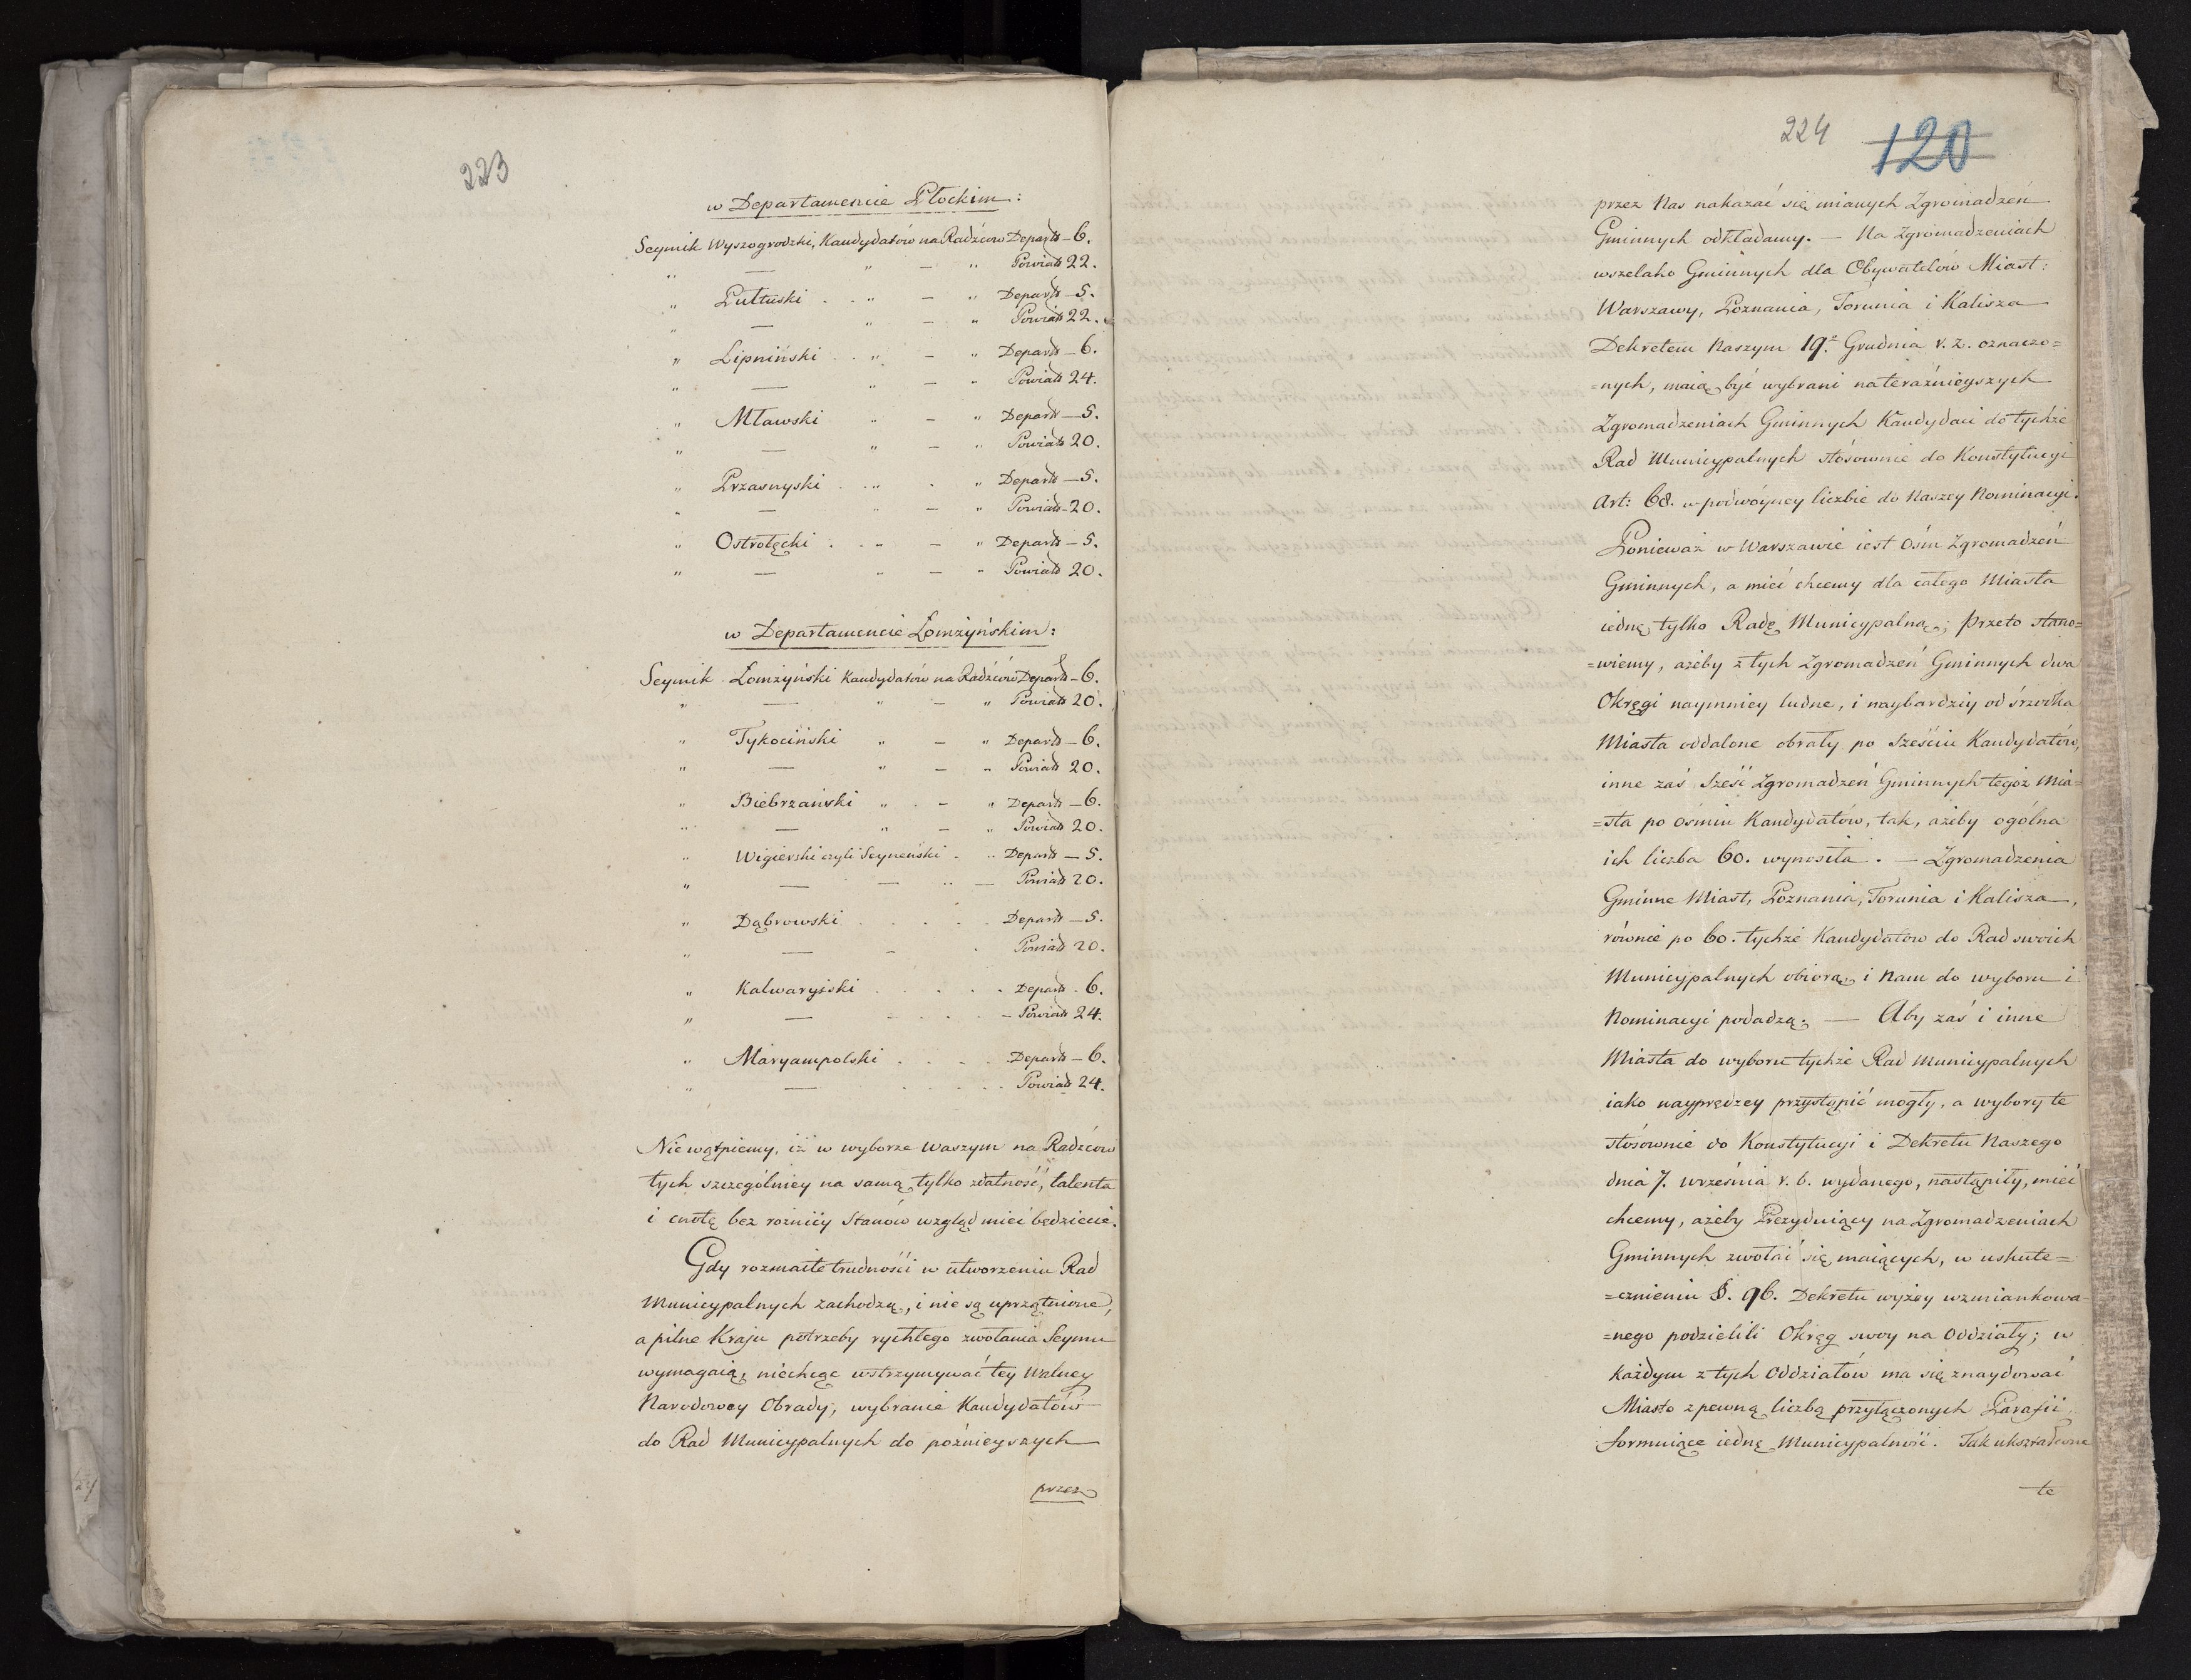 223
w Departamencie Płockim:
Seymik Wyszogrodzki, Kandydatów na Radźców Departo – 6.
" — " – " Powiato 22.
" Pułtuski . . " – " Departo – 5.
" — " – " Powiato 22.
" Lipniński . . " – " Departo – 6.
" — " – " Powiato 24.
" Mławski " – " Departo – 5.
" — " – " Powiato 20.
" Przasnyski . . " . " Departo – 5.
" — " – " Powiato – 20.
" Ostrołęcki . . " – " Departo – 5.
" — " – " Powiato 20.
w Departamencie Łomżyńskim:
Seymik Łomżyński Kandydatów na Radźców Departo – 6.
" — " – " Powiato 20.
" Tykociński " – " Departo – 6.
" — " – " Powiato 20.
" Biebrzański " . – " Departo – 6.
" — " – " Powiato 20.
" Wigierski czyli Seyneński . . . Departo – 5.
" — — " — Powiato 20.
" Dąbrowski . . . . . Departo – 5.
" — – . Powiato 20.
" Kalwaryiski . . . . . Departo . 6.
" — . . . . – Powiato 24.
" Maryampolski . . . . Departo – 6.
" — . . . . . Powiato 24.
Nie wątpiemy, iż w wyborze waszym na Radźców
tych szczególniey na samą tylko zdatność, talenta
i cnotę bez rożnicy Stanów wzgląd mieć będziecie.
Gdy rozmaite trudności w utworzeniu Rad
Municypalnych zachodzą, i nie są uprzątnione,
a pilne Kraju potrzeby rychłego zwołania Seymu
wymagaią, niechcąc wstrzymywać tey walney
Narodowey Obrady, wybranie Kandydatów
do Rad Municypalnych do poźnieyszych
przez
224 120
przez Nas nakazać się mianych Zgromadzeń
Gminnych odkładamy. — Na Zgromadzeniach
wszelako Gminnych dla Obywatelów Miast:
Warszawy, Poznania, Torunia i Kalisza
Dekretem Naszym 19. Grudnia r. z. oznaczo=
=nych, maią być wybrani na teraźnieyszych
Zgromadzeniach Gminnych Kandydaci do tychże
Rad Municypalnych stosownie do Konstytucyi
Art: 68. w podwóyney liczbie do Naszey Nominacyi.
Ponieważ w Warszawie iest Ośm Zgromadzeń
Gminnych, a mieć chcemy dla całego Miasta
iednę tylko Radę Municypalną; przeto stano=
=wiemy, ażeby z tych Zgromadzeń Gminnych dwa
Okręgi naymniey ludne, i naybardziey od śrzodka
Miasta oddalone obrały po Sześciu Kandydatów,
inne zaś Sześć Zgromadzeń Gminnych tegoż Mia=
=sta po ośmiu Kandydatów, tak, ażeby ogólna
ich liczba 60. wynosiła. — Zgromadzenia
Gminne Miast, Poznania, Torunia i Kalisza,
równie po 60. tychże Kandydatów do Rad swoich
Municypalnych obiorą i Nam do wyboru i
Nominacyi podadzą. — Aby zaś i inne
Miasta do wyboru tychże Rad Municypalnych
iako nayprędzey przystąpić mogły, a wybory te
stosownie do Konstytucyi i Dekretu Naszego
dnia 7. września r. b. wydanego, nastąpiły, mieć
chcemy, ażeby Prezyduiący na Zgromadzeniach
Gminnych zwołać się maiących, w uskute=
=cznieniu §. 96. Dekretu wyżey wzmiankowa
=nego podzielili Okręg swóy na Oddziały; w
każdym z tych Oddziałów ma się znaydować
Miasto z pewną liczbą przyłączonych Parafii
formuiące iednę Municypalność. Tak ukształcone
te